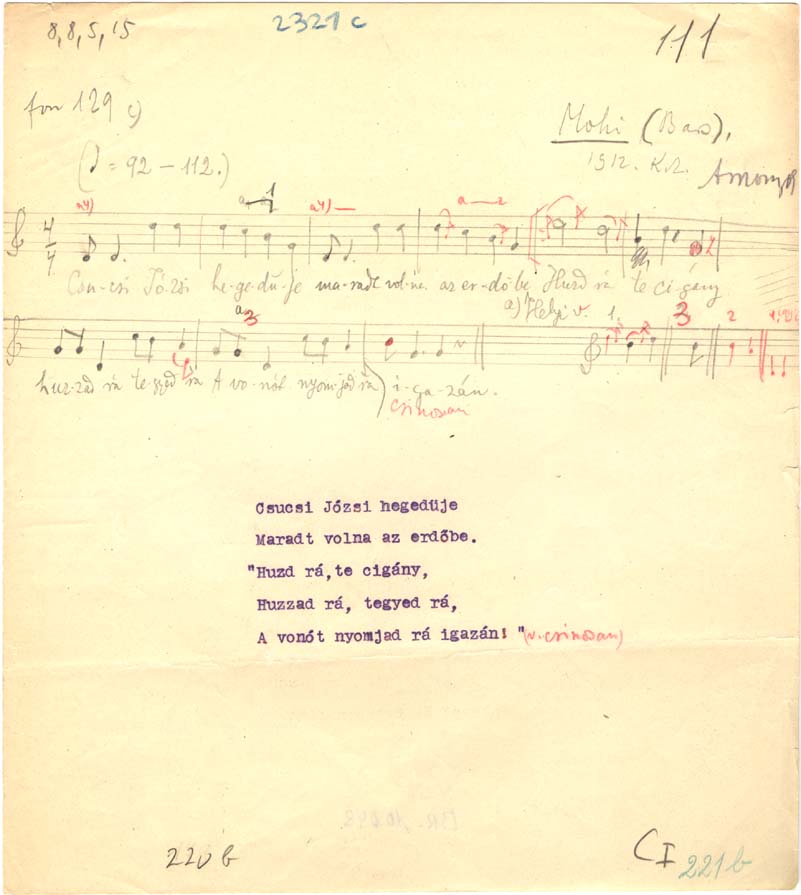 8, 8, 5, 15
2321 c
111
fon 129 c)
Mohi (Bars),
(♩ = 92 – 112.)
1912. K.Z.
a
1
a
2
4
4
Csu-csi Jó-zsi he-ge-dü-je ma-radt vol-na az er-dő-be Huzd rá te ci-gány
a) Helyi v. 1.
3
2
a
3
huz-zad rá te-gyed rá A vo-nót nyom-jad rá i-ga-zán.
csinosan
Csucsi Józsi hegedüje
Maradt volna az erdőbe.
"Huzd rá, te cigány,
Huzzad rá, tegyed rá,
A vonót nyomjad rá igazán! " (v. csinosan)
220 b
C I
221 b